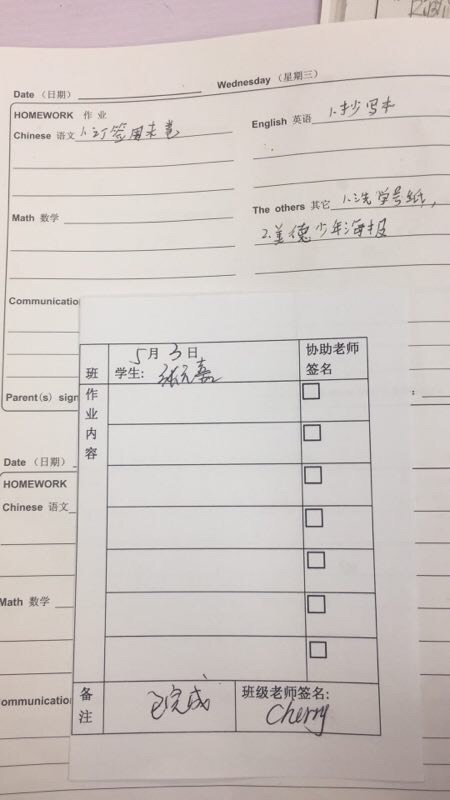 Date （日期） Wednesday （星期三）
HOMEWORK 作业
Chinese 语文 1.订签周末卷
English 英语 1.抄写本
Math 数学
The others 其它 1.洗学号纸，
2.美德少年海报
Communication
Parent(s) sign
班
5月3日
学生: 张元嘉
协助老师
签名
作业内容
备注
已完成
班级老师签名:
Cherry
Date （日期）
HOMEWORK
Chinese 语文
Math 数学
ommunication